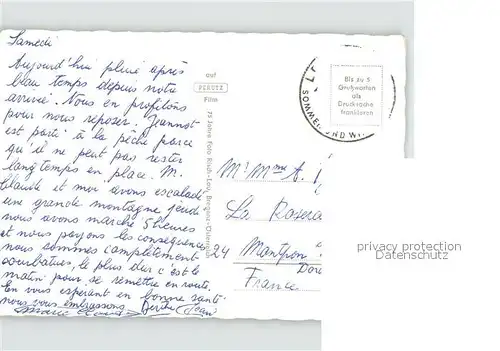 Samedi
Aujourd'hui pluie après
beau temps depuis notre
arrivée. Nous en profitons
pour nous reposer. Jeannot
est parti à la pêche parce
qu'il ne peut pas rester
longtemps en place. M.
Claude et moi avons escaladé
une grande montagne jeudi
nous avons marché 5 heures
et nous payons les conséquences
nous sommes complètement
courbatues, le plus dur c'est le
matin pour se remettre en route.
En vous espérant en bonne santé
nous vous embrassons
Marie Claude Jean
auf
PERUTZ
Film
25 Jahre Foto Risch-Lau, Bregenz
Bis zu 5
Grußworten
als
Drucksache
frankieren
SOMMER UND
Mr Mme A.
La
24
France
privacy protection
Datenschutz